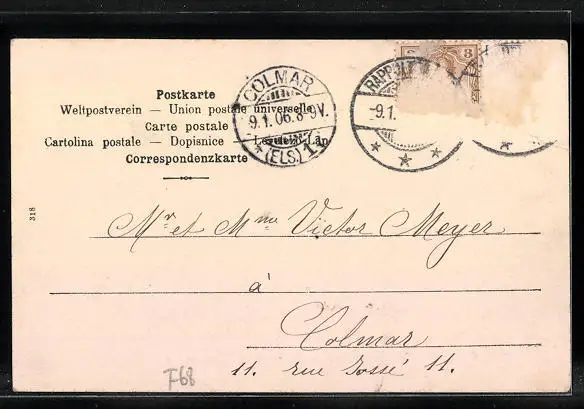 Postkarte
Weltpostverein — Union postale universelle
Carte postale
Cartolina postale — Dopisnice — Levelező-Lap
Correspondenzkarte
COLMAR
9.1.06.8-9V.
* (ELS.) 1 *
RAPP
-9.1.
3
318
Mr. et Mme Victor Meyer
à
Colmar
11. rue Jossé 11.
F68